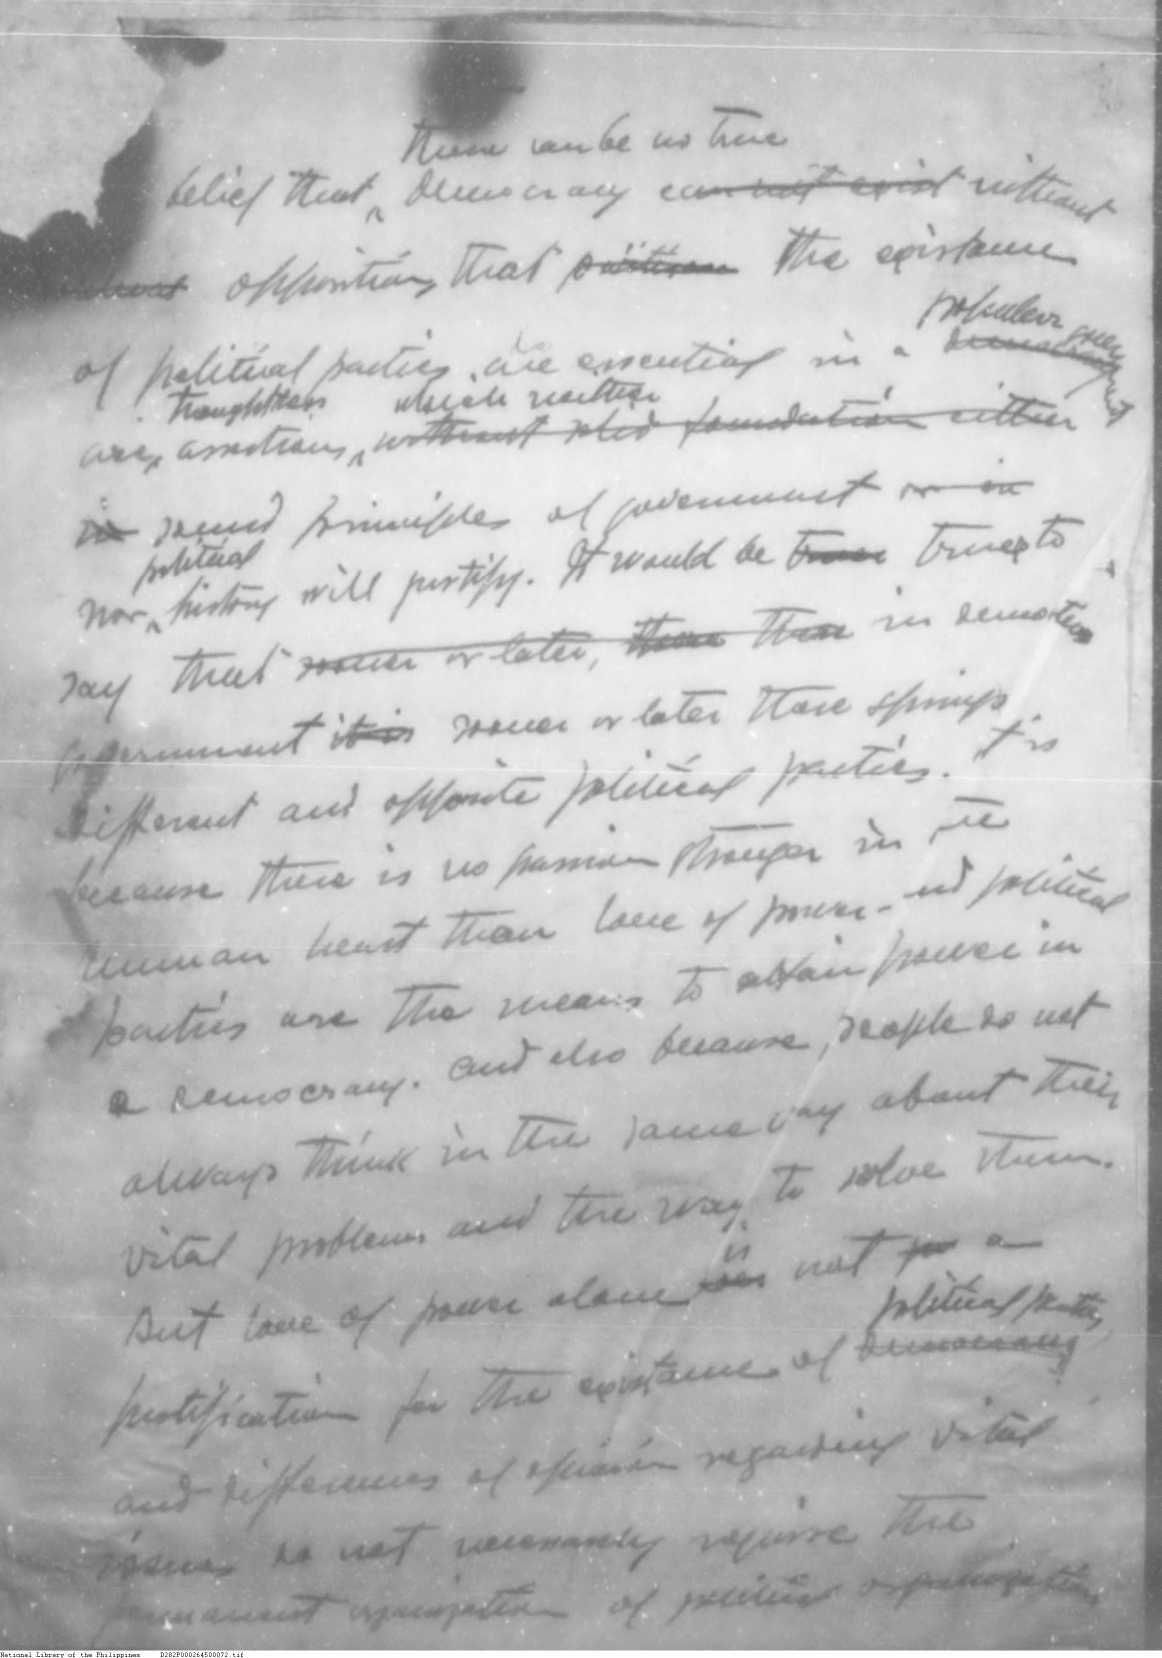 there can be no true
belief that democracy can not exist without
opposition, that the existence
popular government
of political parties are essential in a democracy
thoughtless which neither
are assertions, without solid foundation either
in sound principles of government or in
political
nor history will justify. It would be true to
say that sooner or later, there in democratic
government it is sooner or later there springs
different and opposite political parties. It is
because there is no passion stronger in the
human heart than love of power - and political
parties are the means to attain power in
a democracy. And also because, people do not
always think in the same way about their
vital problems and the way to solve them.
is
But love of power alone not for a
political parties,
justification for the existence of democracy
and differences of opinion regarding vital
issues do not necessarily require the
permanent organization of political organization
National Library of the Philippines D282P000264500072.tif